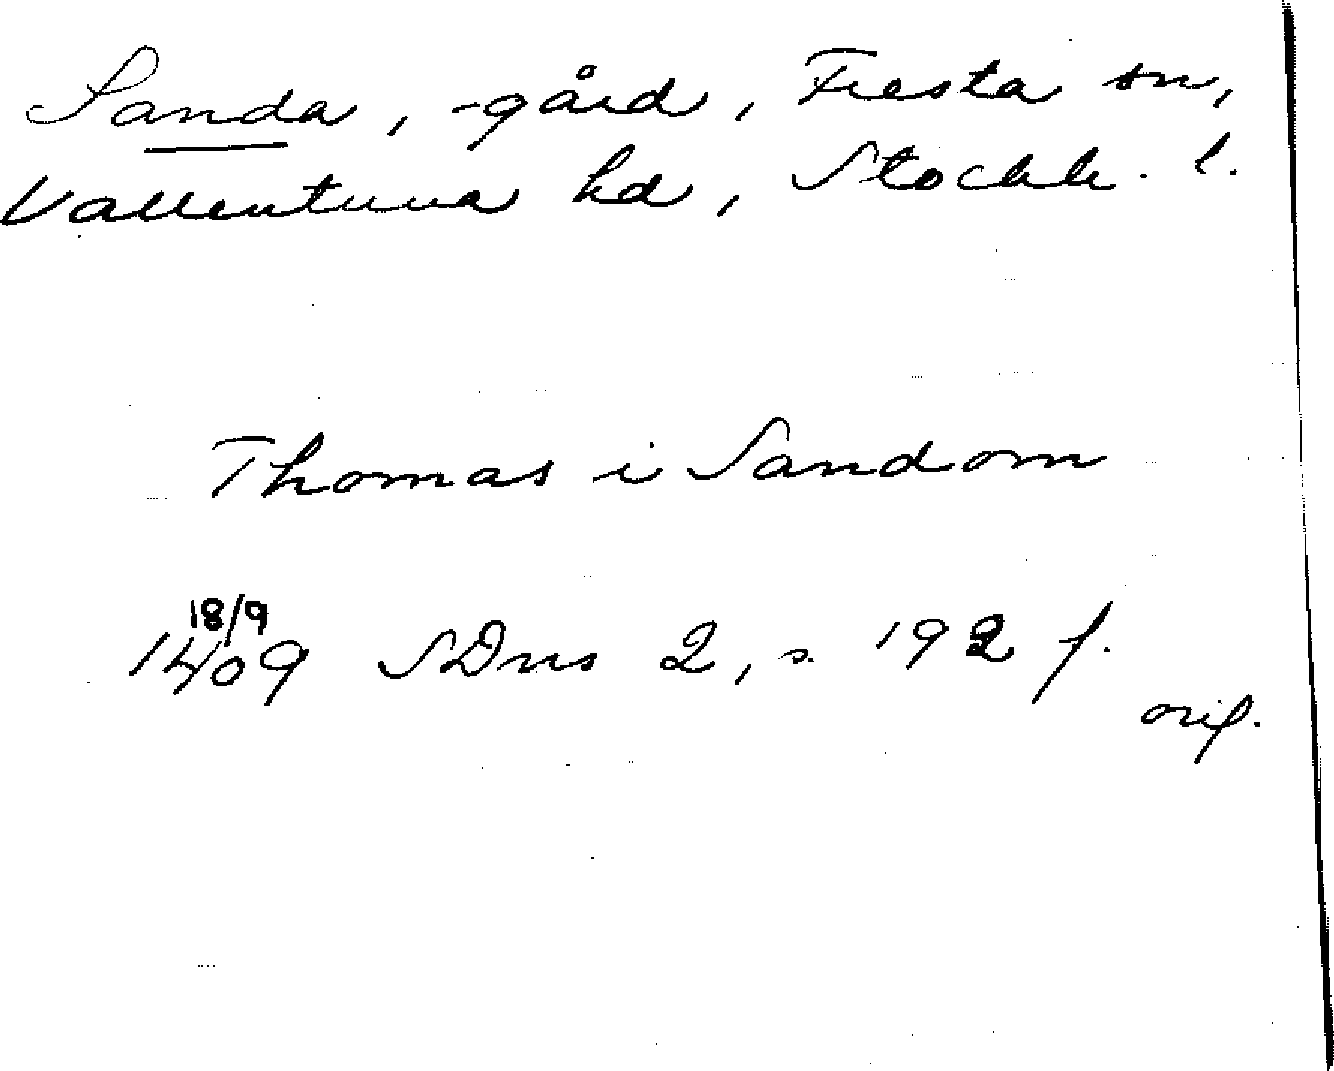 Sanda, -gård, Fresta sn,
Vallentuna hd, Stockh. l.
Thomas i Sandom
18/9
1409 SDns 2, s. 192 f.
orig.